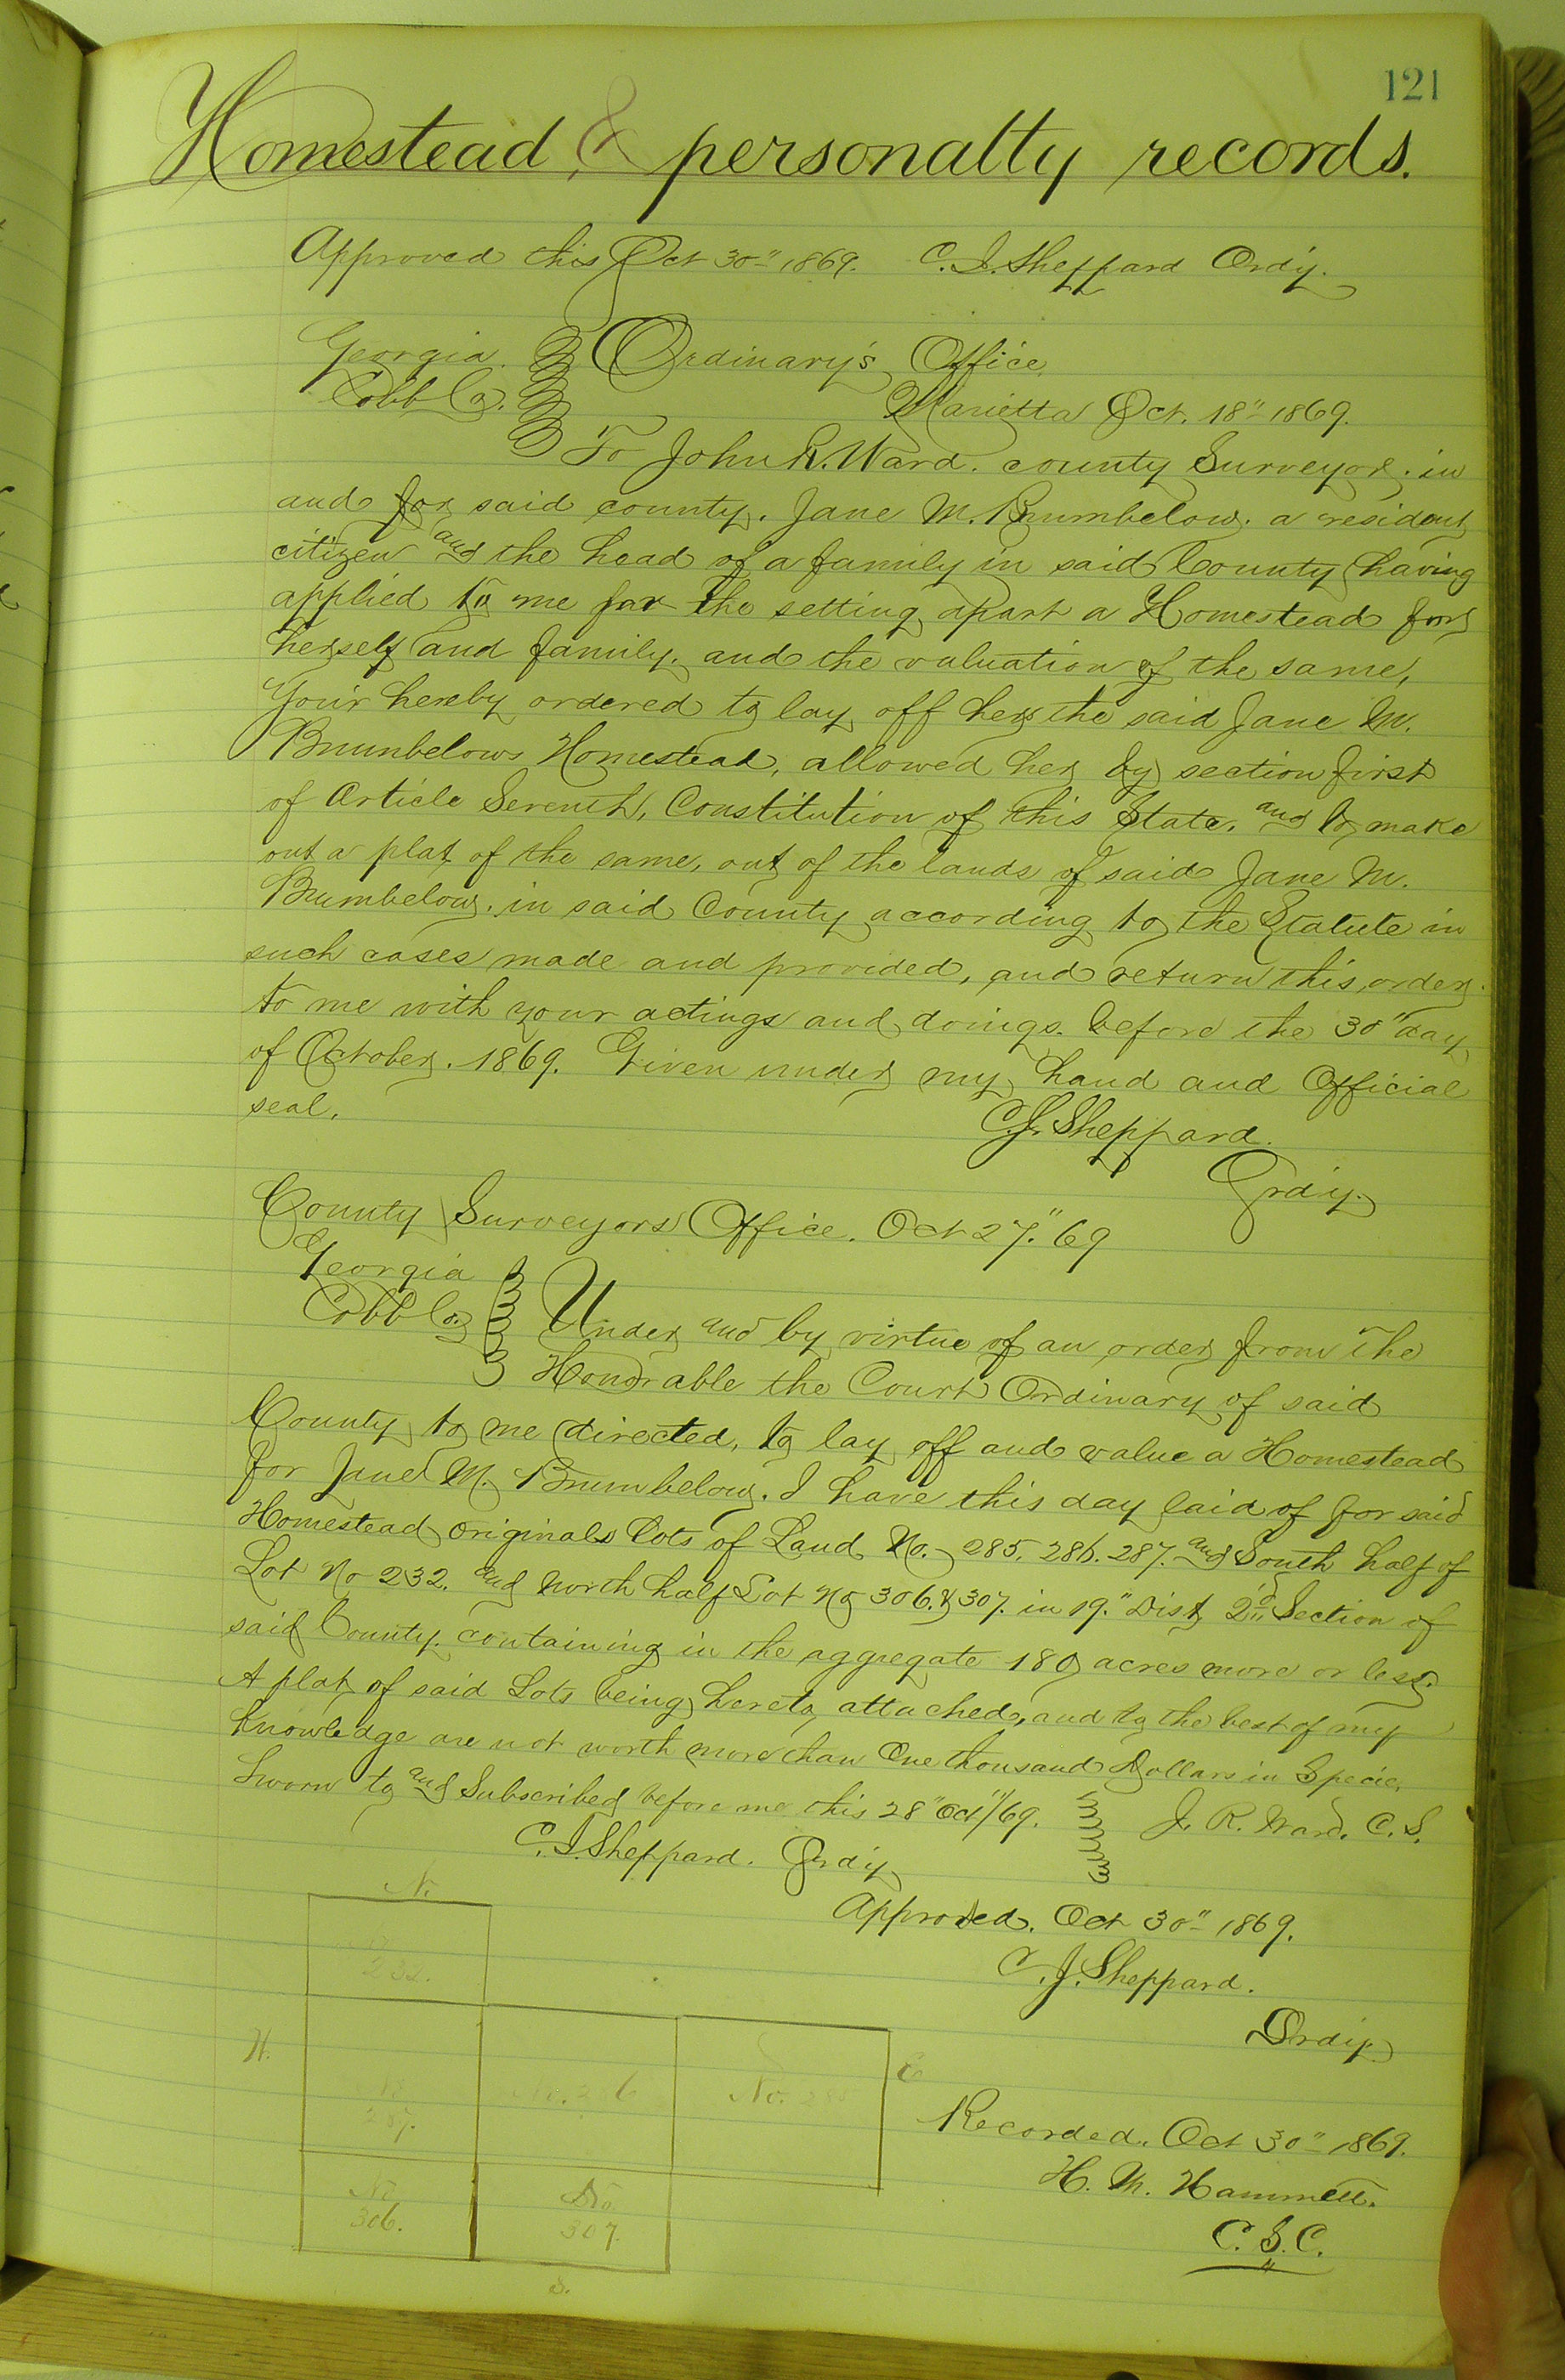 121
Homestead, & personalty records.
Approved this Oct 30" 1869. C. J. Sheppard Ordy.
Georgia Ordinary's Office
Cobb Co. Marietta Oct. 18" 1869.
To John R. Ward. county Surveyor. in
and for said county. Jane M. Brumbelow. a resident
citizen and the head of a family in said County having
applied to me for the setting apart a Homestead for
herself and family. and the valuation of the same,
Your hereby ordered to lay off her the said Jane M.
Brumbelows Homestead, allowed her by section first
of Article Seventh, Constitution of this State. and to make
out a plat of the same, out of the lands of said Jane M.
Brumbelow. in said County according to the Statute in
such cases made and provided, and return this order
to me with your actings and doings. before the 30" day
of October. 1869. Given under my hand and Official
seal.
C. J. Sheppard.
Ordy.
County Surveyors Office. Oct 27." 69
Georgia
Cobb Co. Under and by virtue of an order from the
Honorable the Court Ordinary of said
County to me directed, to lay off and value a Homestead
for Jane M. Brumbelow. I have this day laid of for said
Homestead originals Lots of Land No. 285. 286. 287. and South half of
Lot No 232. and North half Lot No 306. & 307. in 19." Dist 2nd Section of
said County. containing in the aggregate 180 acres more or less.
A plat of said Lots being hereto attached, and to the best of my
Knowledge are not worth more than One thousand Dollars in Specie,
Sworn to and Subscribed before me this 28" Oct"/69. J. R. Ward. C. S.
C. J. Sheppard. Ordy
N.
Approved. Oct 30" 1869.
232.
C. J. Sheppard.
Ordy
W.
E
No 287.
No. 286
No. 285
Recorded. Oct 30" 1869.
H. M. Hammett.
No 306.
No 307.
C. S. C.
S.